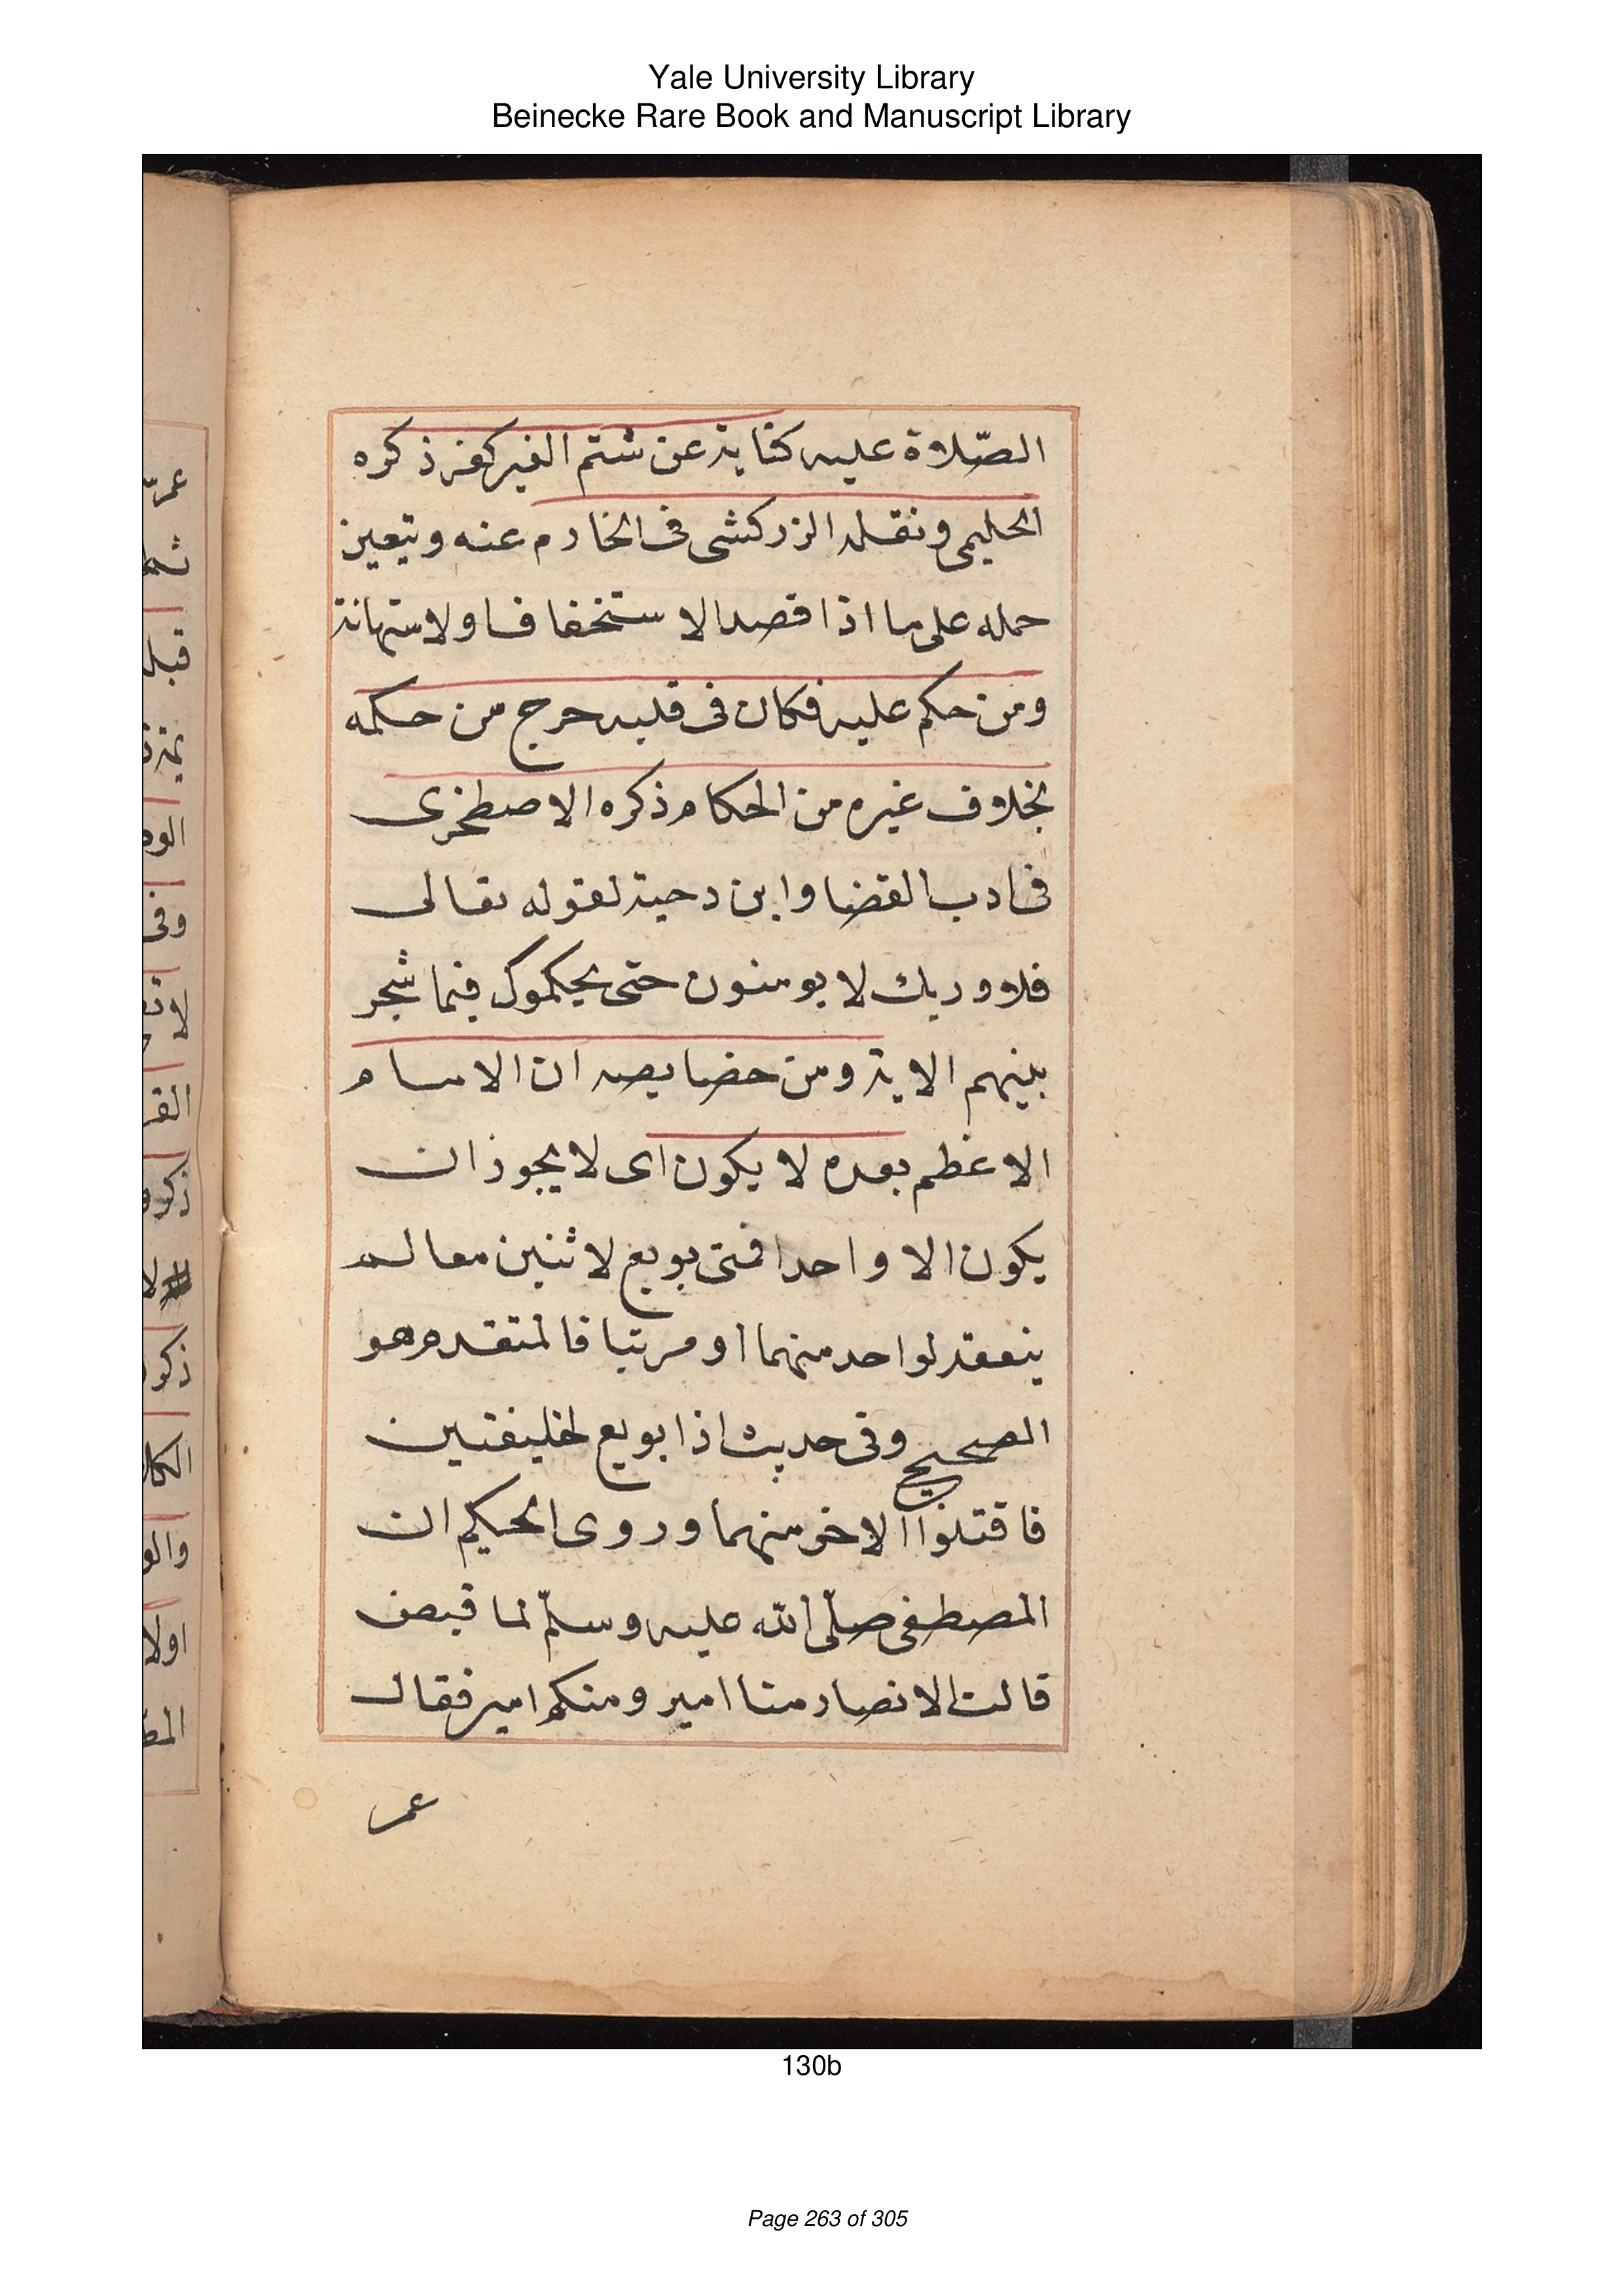 Yale University Library
Beinecke Rare Book and Manuscript Library
الصّلاة عليه كناية عن شتم الغير كفر ذكره
الحليمى ونقله الزركشى فى الخادم عنه ويتعين
حمله على ما اذا قصد الاستخفاف اولاستهانة
ومن حكم عليه فكان فى قلبه حرج من حكمه
بخلاف غيره من الحكام ذكره الاصطخرى
فى ادب القضا وابن دحية لقوله تعالى
فلا وربك لا يومنون حتى يحكموك فيما شجر
بينهم الاية ومن خصايصه ان الامام
الاعظم بعده لا يكون اى لا يجوز ان
يكون الا واحدا فمتى بويع لاثنين معا لم
ينعقد لواحد منهما او مرتبا فالمتقدم هو
الصحيح وفى حديث اذا بويع لخليفتين
فاقتلوا الاخر منهما وروى الحكيم ان
المصطفى صلّى الله عليه وسلّم لما قبض
قالت الانصار منا امير ومنكم امير فقال
عمر
130b
Page 263 of 305